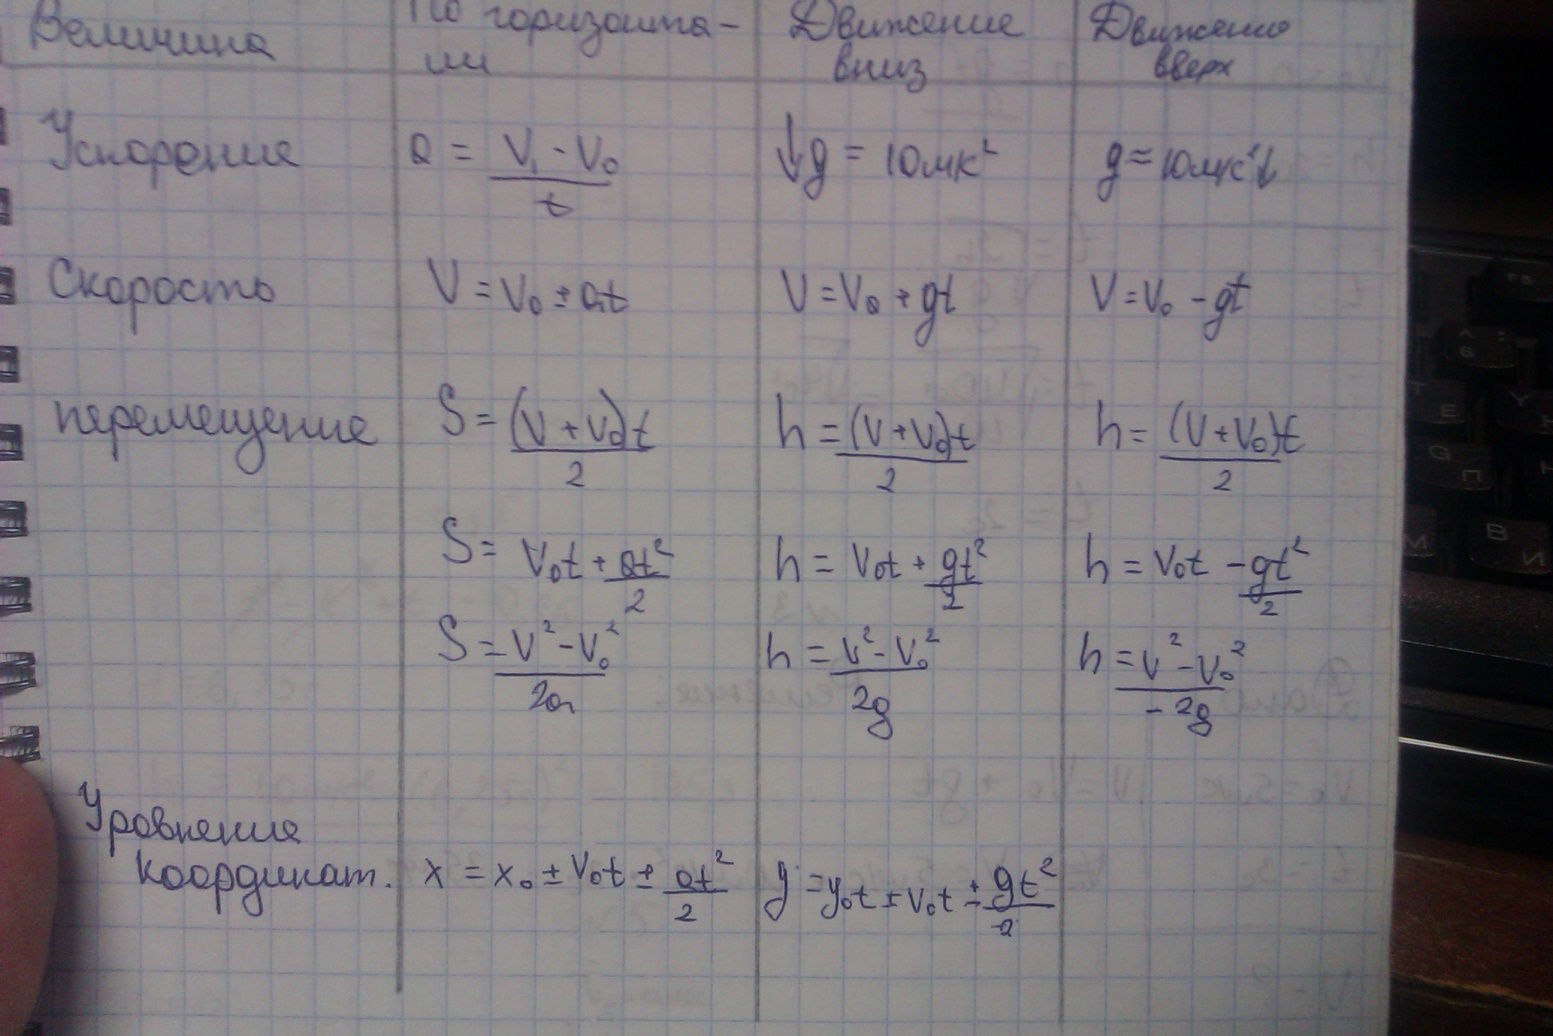 Величина По горизонта- Движение Движение
ли вниз вверх
Ускорение a = (V₁ - V₀)/t ↓g = 10м/с² g = 10м/с²↓
Скорость V = V₀ ± at V = V₀ + gt V = V₀ - gt
перемещение S = (V + V₀)t/2 h = (V + V₀)t/2 h = (V + V₀)t/2
S = V₀t + at²/2 h = V₀t + gt²/2 h = V₀t - gt²/2
S = (V² - V₀²)/2a h = (V² - V₀²)/2g h = (V² - V₀²)/-2g
Уровнение
координат. x = x₀ ± V₀t ± at²/2 y = y₀t ± V₀t ± gt²/2